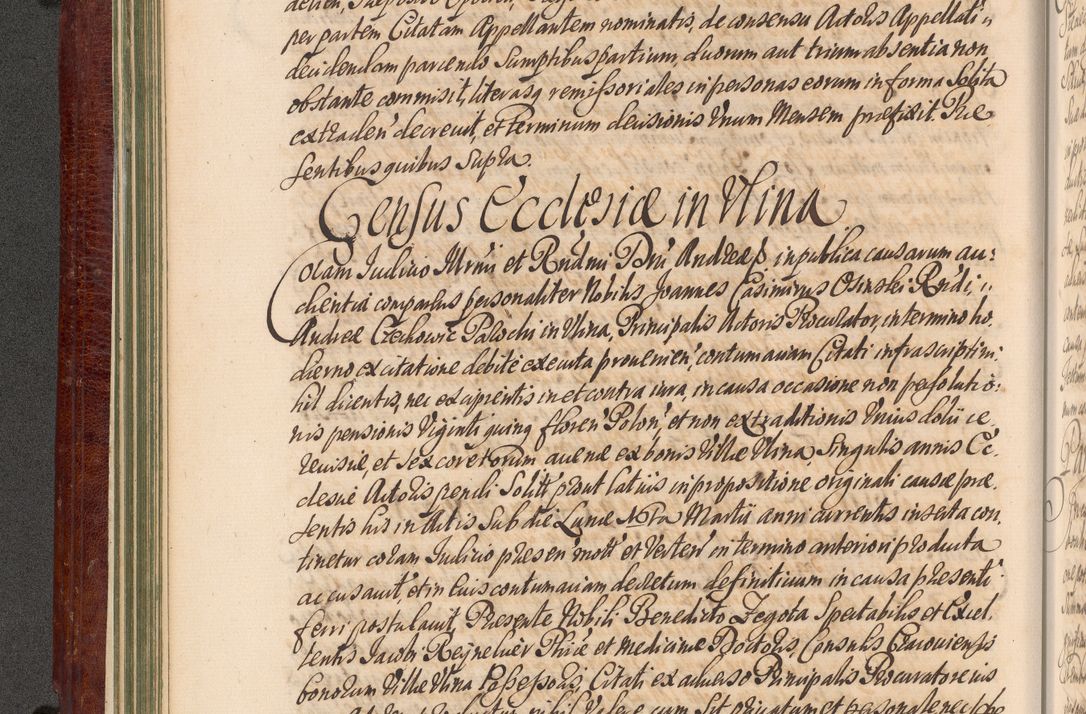 per partem Citatam Appellantem nominatis, de consensu Actoris Appellati,,
decidendam parcendo Sumptibus partium, duorum aut trium absentia non
obstante commisit, literasq remissoriales in personas eorum in forma Solita
extraden' decrevit, et terminum decisionis Unum Mensem præfixit. Præ
sentibus quibus Supra.
Census Ecclesiæ in Vlina
Coram Judicio Illrmi et Rndmi Dni Andreæ p in publica causarum au:
dientia comparens personaliter Nobilis Joannes Casimirus Osinski Rndi,,
Andreæ Czechowic Parochi in Vlina, Principalis Actoris Procurator, in termino ho
dierno ex citatione debite executa provenien', contumaciam Citati infrascripti ni:
hil dicentis, nec excipientis in et contra iura, in causa occasione non persoluti o:
nis pensionis Viginti quinq floren' Polon' et non extraditionis Unius dolii ce
revisiæ et sex coretorum avenæ ex bonis Villæ Vlina, Singulis annis Ec
clesiæ Actoris pendi Solitt prout latius in propositione originali causæ præ
sentis his in Actis Sub die Lunæ Martii anni currentis inserta con
tinetur coram Judicio præsen' mott' et Verten' in termino anteriori producta
accusavit, et in Eius contumaciam decretum definitivum in causa præsenti
ferri postulavit. Præsente Nobili Benedicto Zegota Spectabilis et Excel
lentis Jacobi Rejnekier Phiæ et Medicinæ Doctoris, Consulis Cracoviensis
bonorum Villæ Vlina Possessoris, Citati ex adverso Principalis Procuratore eius
nihil Valere cum Sit et personale nec